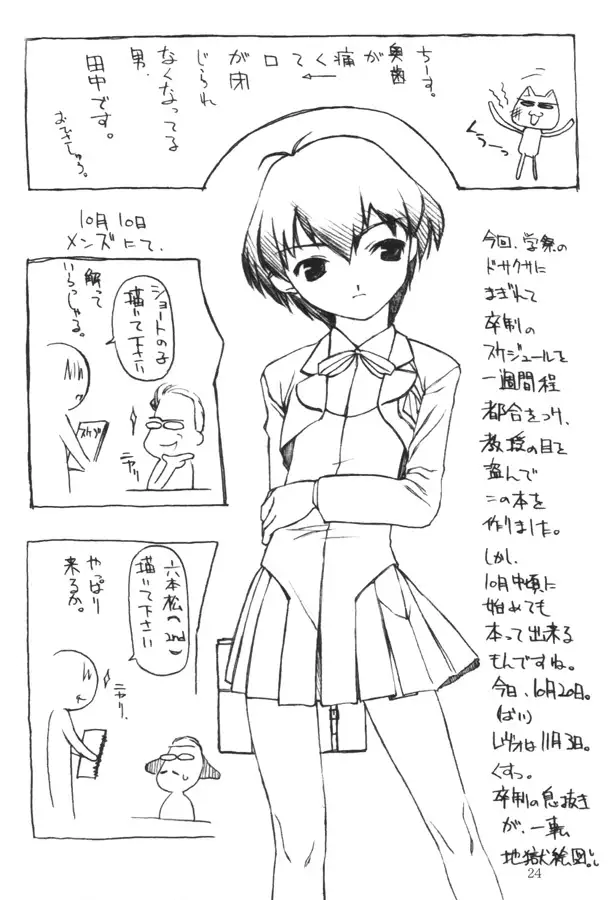 ちーす。
奥歯
が
痛
くて
口
が閉
じられ
なくなってる
男、
田中です。
おひさしゅう。
くぅーっ
10月10日
メンズにて、
ショートの子
描いて下さい
解って
いらっしゃる。
スケブ
ニヤリ
六本松(2nd)
描いて下さい
やっぱり
来るか。
ニヤリ
今回、学祭の
ドサクサに
まぎれて
卒制の
スケジュールを
一週間程
都合をつけ、
教授の目を
盗んで
この本を
作りました。
しかし、
10月中頃に
始めても
本って出来る
もんですね。
今日、10月20日。
(ばい)
レヴォは11月3日。
くすっ。
卒制の息抜き
が、一転
地獄絵図。
24